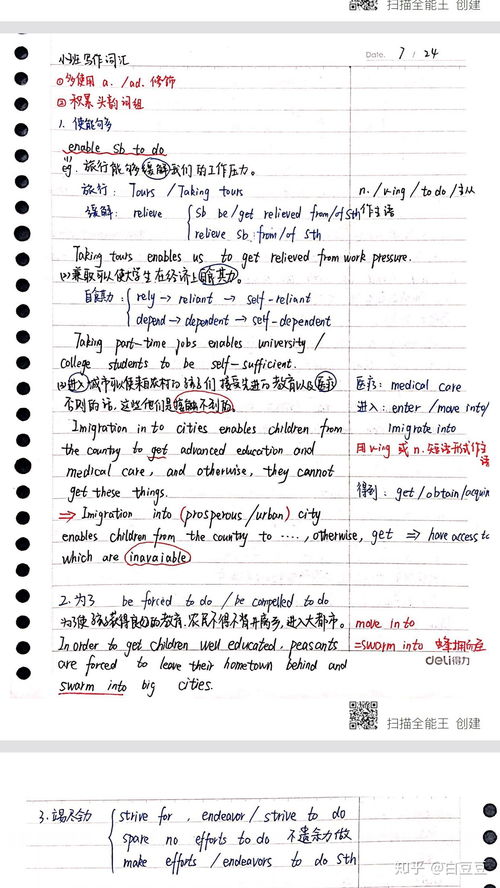 扫描全能王 创建
Date. 7 / 24
小班写作词汇
①多使用 a. /ad. 修饰
② 积累头韵词组
1. 使能够
enable sb to do
eg. 旅行能够缓解我们的工作压力。
旅行: Tours / Taking tours
n. / v-ing / to do /主从
作主语
缓解: relieve
sb be/get relieved from/of sth
relieve sb from/of sth
Taking tours enables us to get relieved from work pressure.
(2) 兼职可以使大学生在经济上自食其力。
自食其力: rely → reliant → self-reliant
depend → dependent → self-dependent
Taking part-time jobs enables university /
college students to be self-sufficient.
(3) 进入城市可以使来自农村的孩子们接受先进的教育以及医疗
否则的话, 这些他们是接触不到的。
医疗: medical care
进入: enter / move into/
imigrate into
Imigration in to cities enables children from
the country to get advanced education and
medical care, and otherwise, they cannot
get these things.
用 v-ing 或 n. 短语形式作主语
得到: get / obtain / acquin
⇒ Imigration into (prosperous /urban) city
enables children from the country to ....., otherwise, get ⇒ have access to
which are inavaiable
2. 为了 be forced to do / be compelled to do
为了使孩子获得良好的教育, 农民不得不背井离乡, 进入大都市。
move in to
In order to get children well educated, peasants
=swarm into 蜂拥而至
are forced to leave their hometown behind and
swarm into big cities.
deli得力
扫描全能王 创建
3. 竭尽全力
strive for , endeavor / strive to do
spare no efforts to do 不遗余力做
make efforts / endeavors to do sth
知乎 @白豆豆